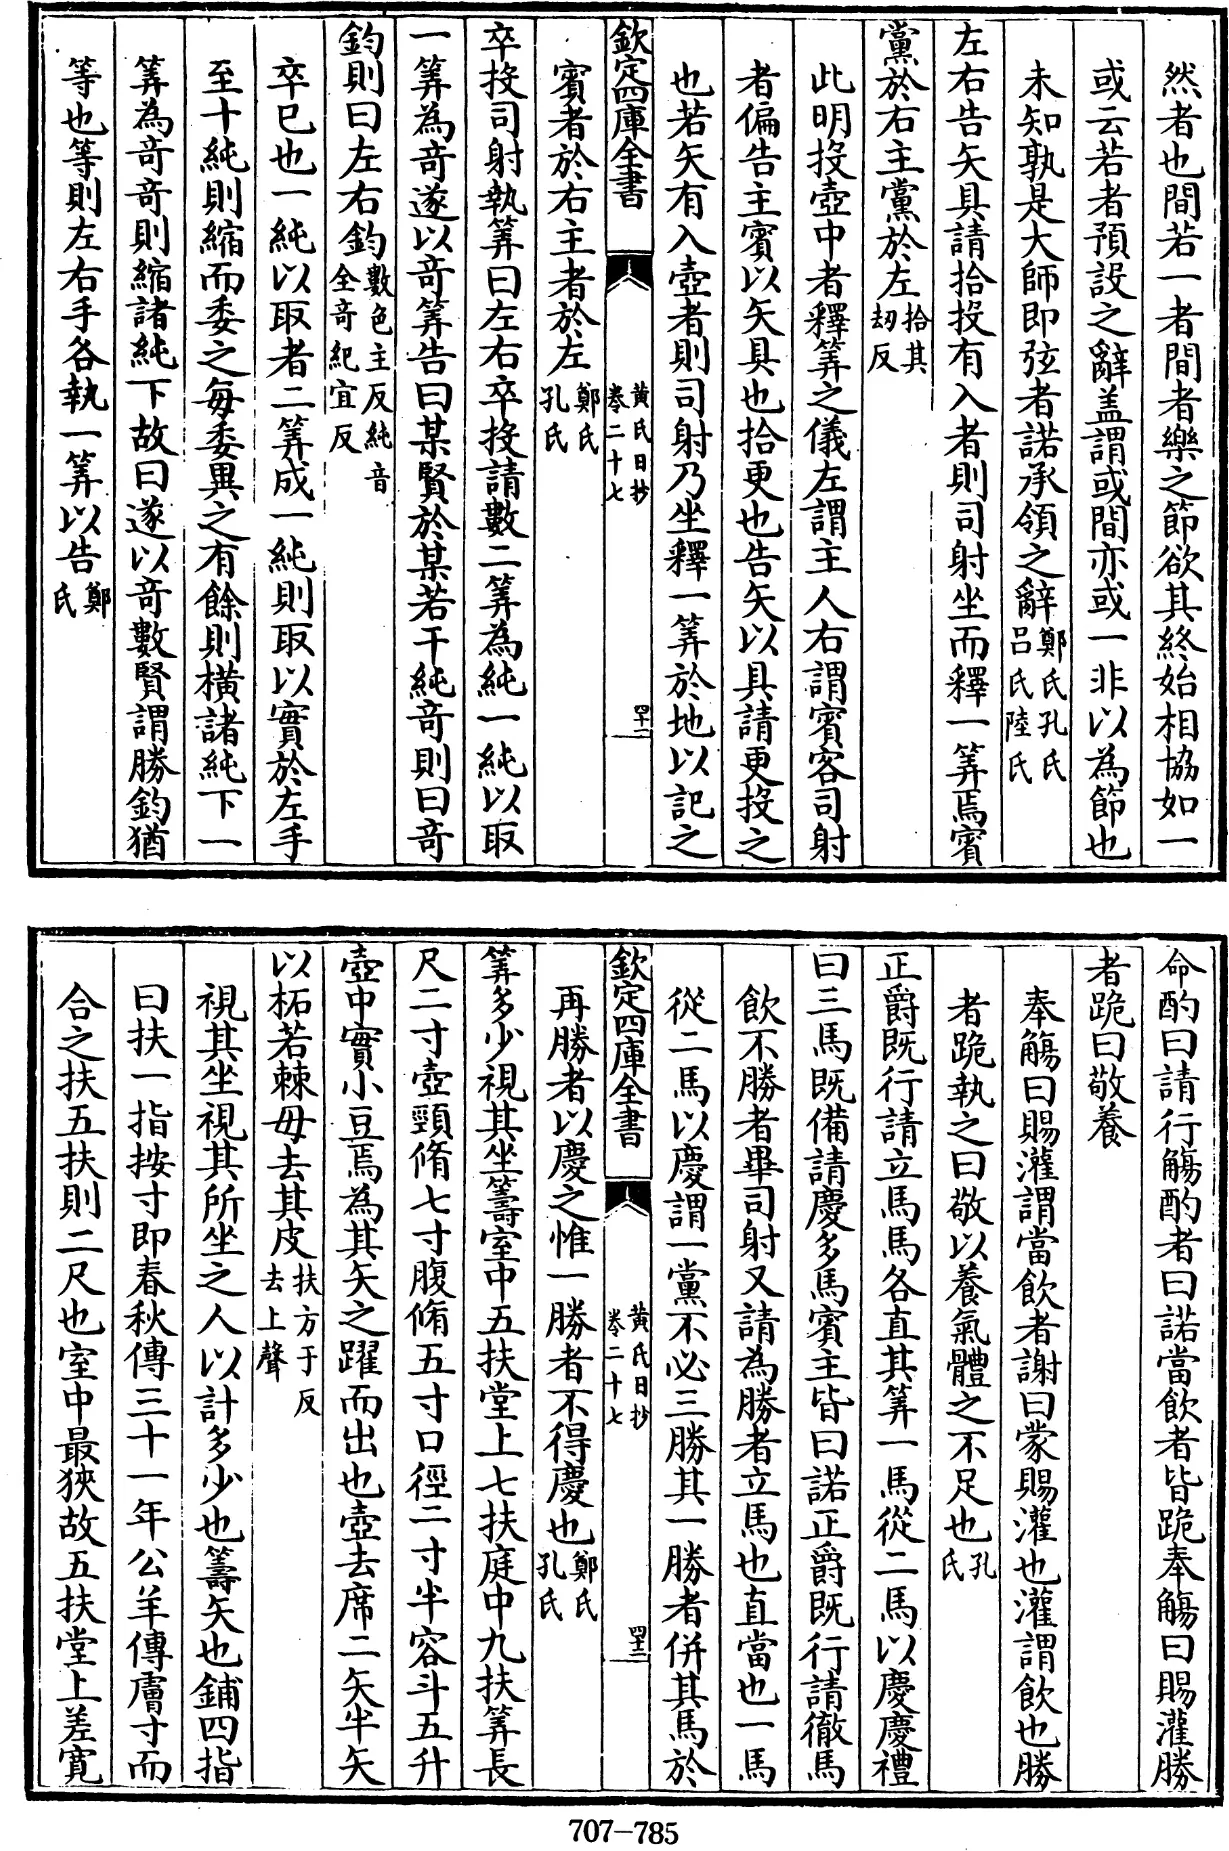 然者也間若一者間者樂之節欲其終始相協如一
或云若者預設之辭盖謂或間亦或一非以為節也
未知孰是大師即弦者諾承領之辭鄭氏孔氏吕氏陸氏
左右告矢具請拾投有入者則司射坐而釋一筭焉賓
黨於右主黨於左拾其刼反
此明投壺中者釋筭之儀左謂主人右謂賓客司射
者偏告主賓以矢具也拾更也告矢以具請更投之
也若矢有入壺者則司射乃坐釋一筭於地以記之
欽定四庫全書
黄氏日抄
卷二十七
四十一
賓者於右主者於左鄭氏孔氏
卒投司射執筭曰左右卒投請數二筭為純一純以取
一筭為竒遂以竒筭告曰某賢於某若干純竒則曰竒
鈞則曰左右鈞數色主反純音全竒紀宜反
卒已也一純以取者二筭成一純則取以實於左手
至十純則縮而委之每委異之有餘則橫諸純下一
筭為竒竒則縮諸純下故曰遂以竒數賢謂勝鈞猶
等也等則左右手各執一筭以告鄭氏
命酌曰請行觴酌者曰諾當飲者皆跪奉觴曰賜灌勝
者跪曰敬養
奉觴曰賜灌謂當飲者謝曰蒙賜灌也灌謂飲也勝
者跪執之曰敬以養氣體之不足也孔氏
正爵既行請立馬馬各直其筭一馬從二馬以慶慶禮
曰三馬既備請慶多馬賓主皆曰諾正爵既行請徹馬
飲不勝者畢司射又請為勝者立馬也直當也一馬
從二馬以慶謂一黨不必三勝其一勝者併其馬於
欽定四庫全書
黄氏日抄
卷二十七
四十二
再勝者以慶之惟一勝者不得慶也鄭氏孔氏
筭多少視其坐籌室中五扶堂上七扶庭中九扶筭長
尺二寸壺頸脩七寸腹脩五寸口徑二寸半容斗五升
壺中實小豆焉為其矢之躍而出也壺去席二矢半矢
以柘若棘毋去其皮扶方于反去上聲
視其坐視其所坐之人以計多少也籌矢也鋪四指
曰扶一指按寸即春秋傳三十一年公羊傳膚寸而
合之扶五扶則二尺也室中最狹故五扶堂上差寛
707-785